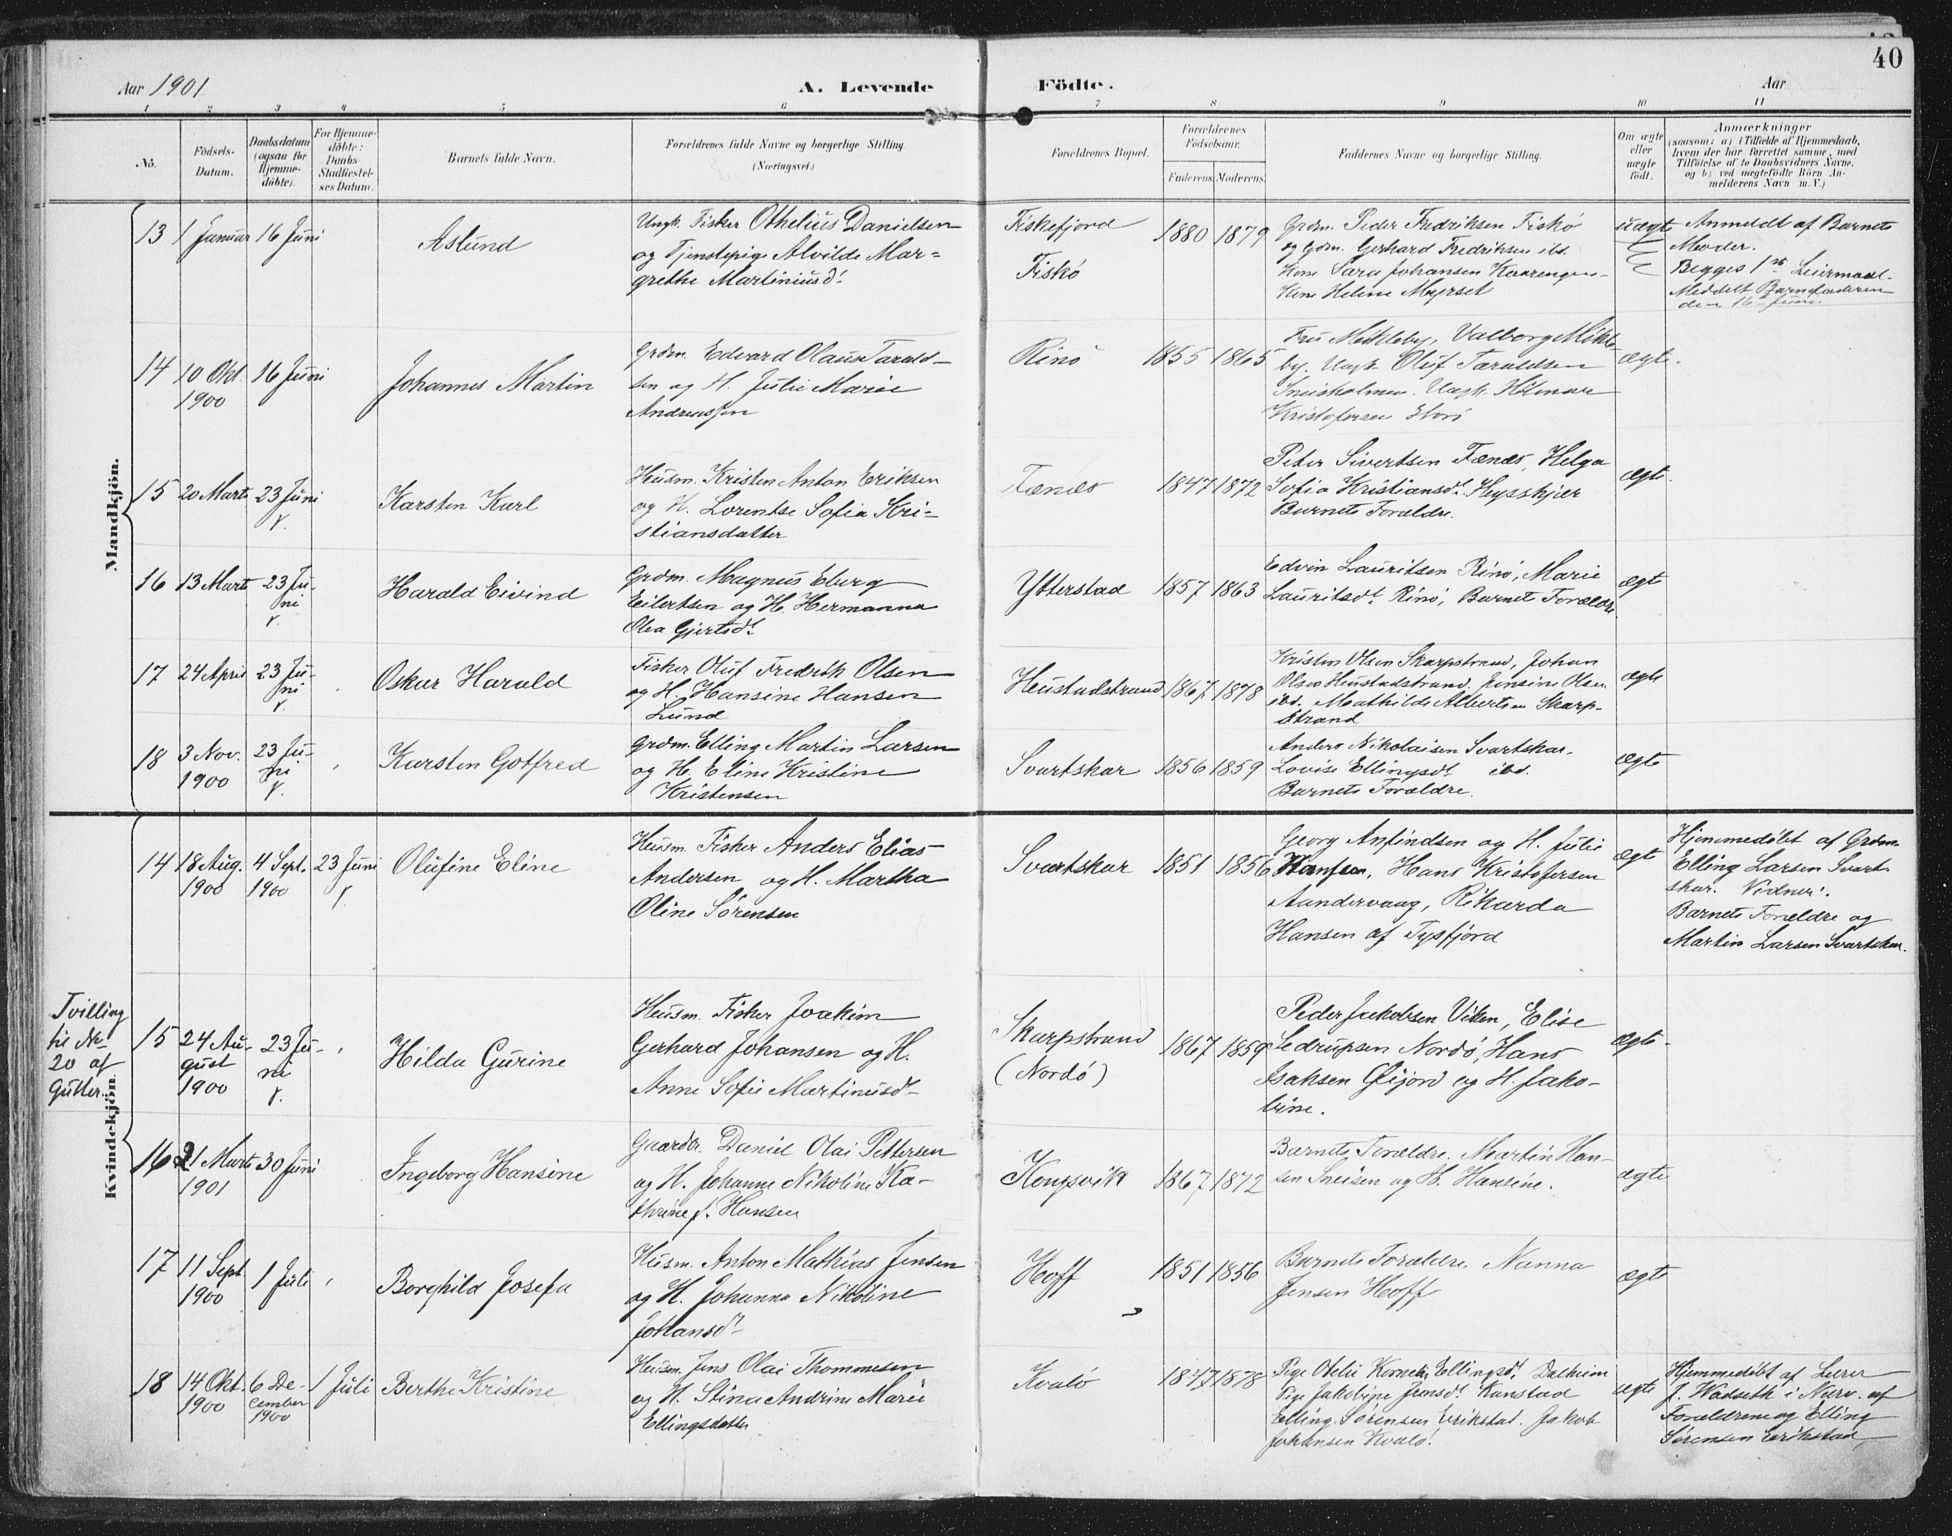 40
Aar 1901
A. Levende
Födte.
Aar
1 2 3 4 5 6 7 8 9 10 11
No.
Födsels-
Datum.
Daabsdatum
(ogsaa for
Hjemme-
döbte).
For Hjemme-
döbte:
Daabs-
Stadfæstel-
ses Datum.
Barnets fulde Navn.
Forældrenes fulde Navne og borgerlige Stilling
(Næringsvei.)
Forældrenes Bopæl.
Forældrenes
Födselsaar.
Faderens.
Moderens.
Faddernes Navne og borgerlige Stilling.
Om ægte
eller
uægte
födt.
Anmærkninger
(saasom: a) i Tilfælde af Hjemmedaab,
hvem der har forrettet samme, med
Tilföielse af to Daabsvidners Navne,
og b) ved uægtefödte Börn An-
melderens Navn m. V.)
Mandkjön.
13
1 Januar
16 Juni
Aslund
Ungk. Fisker Othelius Danielsen
og Tjenstepige Alvilde Mar-
grethe Martiniusd.
Fiskefjord
Fiskö
1880
1879
Grdm. Peder Fredriksen Fiskö
og Grdm. Gerhard Fredriksen ibd.
Kone Sara Johansen Kaarengen
Kone Heline Myrset
uægte
Anmeldt af Barnets
Moder.
Begges 1ste Leiermaal.
Meddelt Barnefaderen
den 16de Juni.
14
10 Okt.
1900
16 Juni
Johannes Martin
Grdm. Edvard Olaus Tarald-
sen og H. Julie Marie
Andreassen
Rinö
1855
1865
Fru Mekleby, Valborg Mekle
by. Ungk. Oluf Taraldsen
Sneisholmen. Ungk. Hilmar
Kristofersen
ægte.
15
20 Marts
23 Juni
Karsten Karl
Husm. Kristen Anton Eriksen
og H. Lorentse Sofia Kri-
stiansdatter
Fænes
1847
1872
Peter Sivertsen Fænes, Helga
Sofia Kristiansd. Hysskjær
Barnets Forældre.
ægte.
16
13 Marts
23 Ju-
ni
Harald Eivind
Grdm. Magnus Eberg
Eilertsen og H. Hermanna
Olea Gjertsd.
Ytterstad
1857
1863
Edvin Lauritsen Rinö, Marie
Lauritsd. Rinö, Barnets Forældre
ægte
17
24 April
23 Ju-
ni
Oskar Harald
Fisker Oluf Fredrik Olsen
og H. Hansine Hansen
Lund
Heustadstrand
1867
1878
Kristen Olsen Skarpstrand, Johan
Olsen Heustadstrand, Jensine Olsen
ibd. Mathilde Albertsen Skarp-
strand
ægte
18
3 Nov.
1900
23 Ju-
ni
Karsten Gotfred
Grdm. Elling Martin Larsen
og H. Eline Kristine
Kristensen
Svartskar
1856
1859
Anders Nikolaisen Svartskar.
Lovise Ellingsd. ibd.
Barnets Forældre.
ægte
Kvindekjön.
14
18 Aug.
1900
4 Sept.
1900
23 Juni
Olufine Eline
Husm. Fisker Anders Elias
Andersen og H. Martha
Oline Sörensen
Svartskar
1851
1856
Georg Anfindsen og H. Julie
Hansen, Hans Kristofersen
Aandervaag, Rikarda
Hansen af Tysfjord
ægte
Hjemmedöbt af Grdm.
Elling Larsen Svart-
skar. Vidner:
Barnets Forældre og
Martin Larsen Svartskar.
Tvilling
til No
20 af
Gutter.
15
24 Au-
gust
1900
23 Ju-
ni
Hilda Gurine
Husm. Fisker Joakim
Gerhard Johansen og H.
Anne Sofie Martinusd.
Skarpstrand
(Nordö)
1867
1859
Peder Jakobsen Viken, Elise
Sedrupsen Nordö, Hans
Isaksen Öijord og H. Jako-
bine.
ægte.
16
21 Marts
1901
30 Juni
Ingeborg Hansine
Gaardbr. Daniel Olai Pettersen
og H. Johanne Nikoline Ka-
thrine f. Hansen
Kongsvik
1867
1872
Barnets Forældre. Martin Han-
sen Sneisen og H. Hansine.
ægte
17
11 Sept
1900
1 Juli
Borghild Josefa
Husm. Anton Mathias Jensen
og H. Johanna Nikoline
Johansd.
Hoff
1851
1856
Barnets Forældre. Nanna
Jensen Hoff
ægte
18
14 Okt.
1900
6 De-
cember
1900
1 Juli
Berthe Kristine
Husm. Jens Olai Thommesen
og H. Stina Andrine Marie
Ellingsdatter
Kvalö
1847
1878
Pige Otelie Kornelie Ellingsd. Dalheim
Pige Jakobine Jensd. Kanstad
Elling Sörensen Erikstad. Jakob
Johansen Kvalö.
ægte
Hjemmedöbt af Lærer
J. Wadseth i Nærv. af
Forældrene og Elling
Sörensen Erikstad